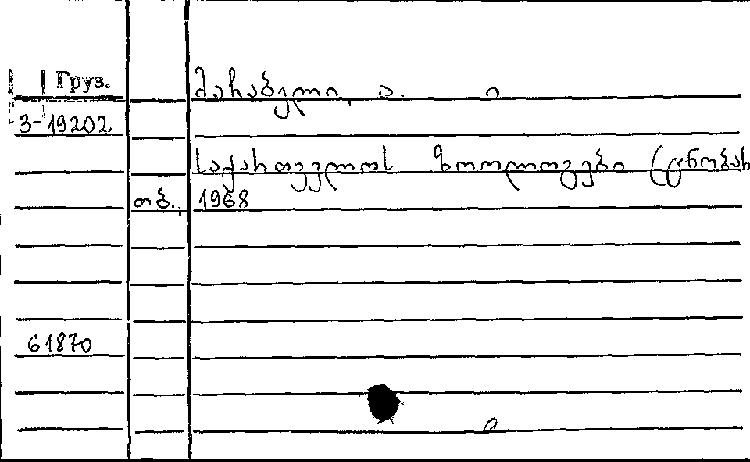 Груз.
მარაბელი, ა.
3-19202.
საქართველოს ზოოლოგები (ცნობარ
თბ., 1968
61870